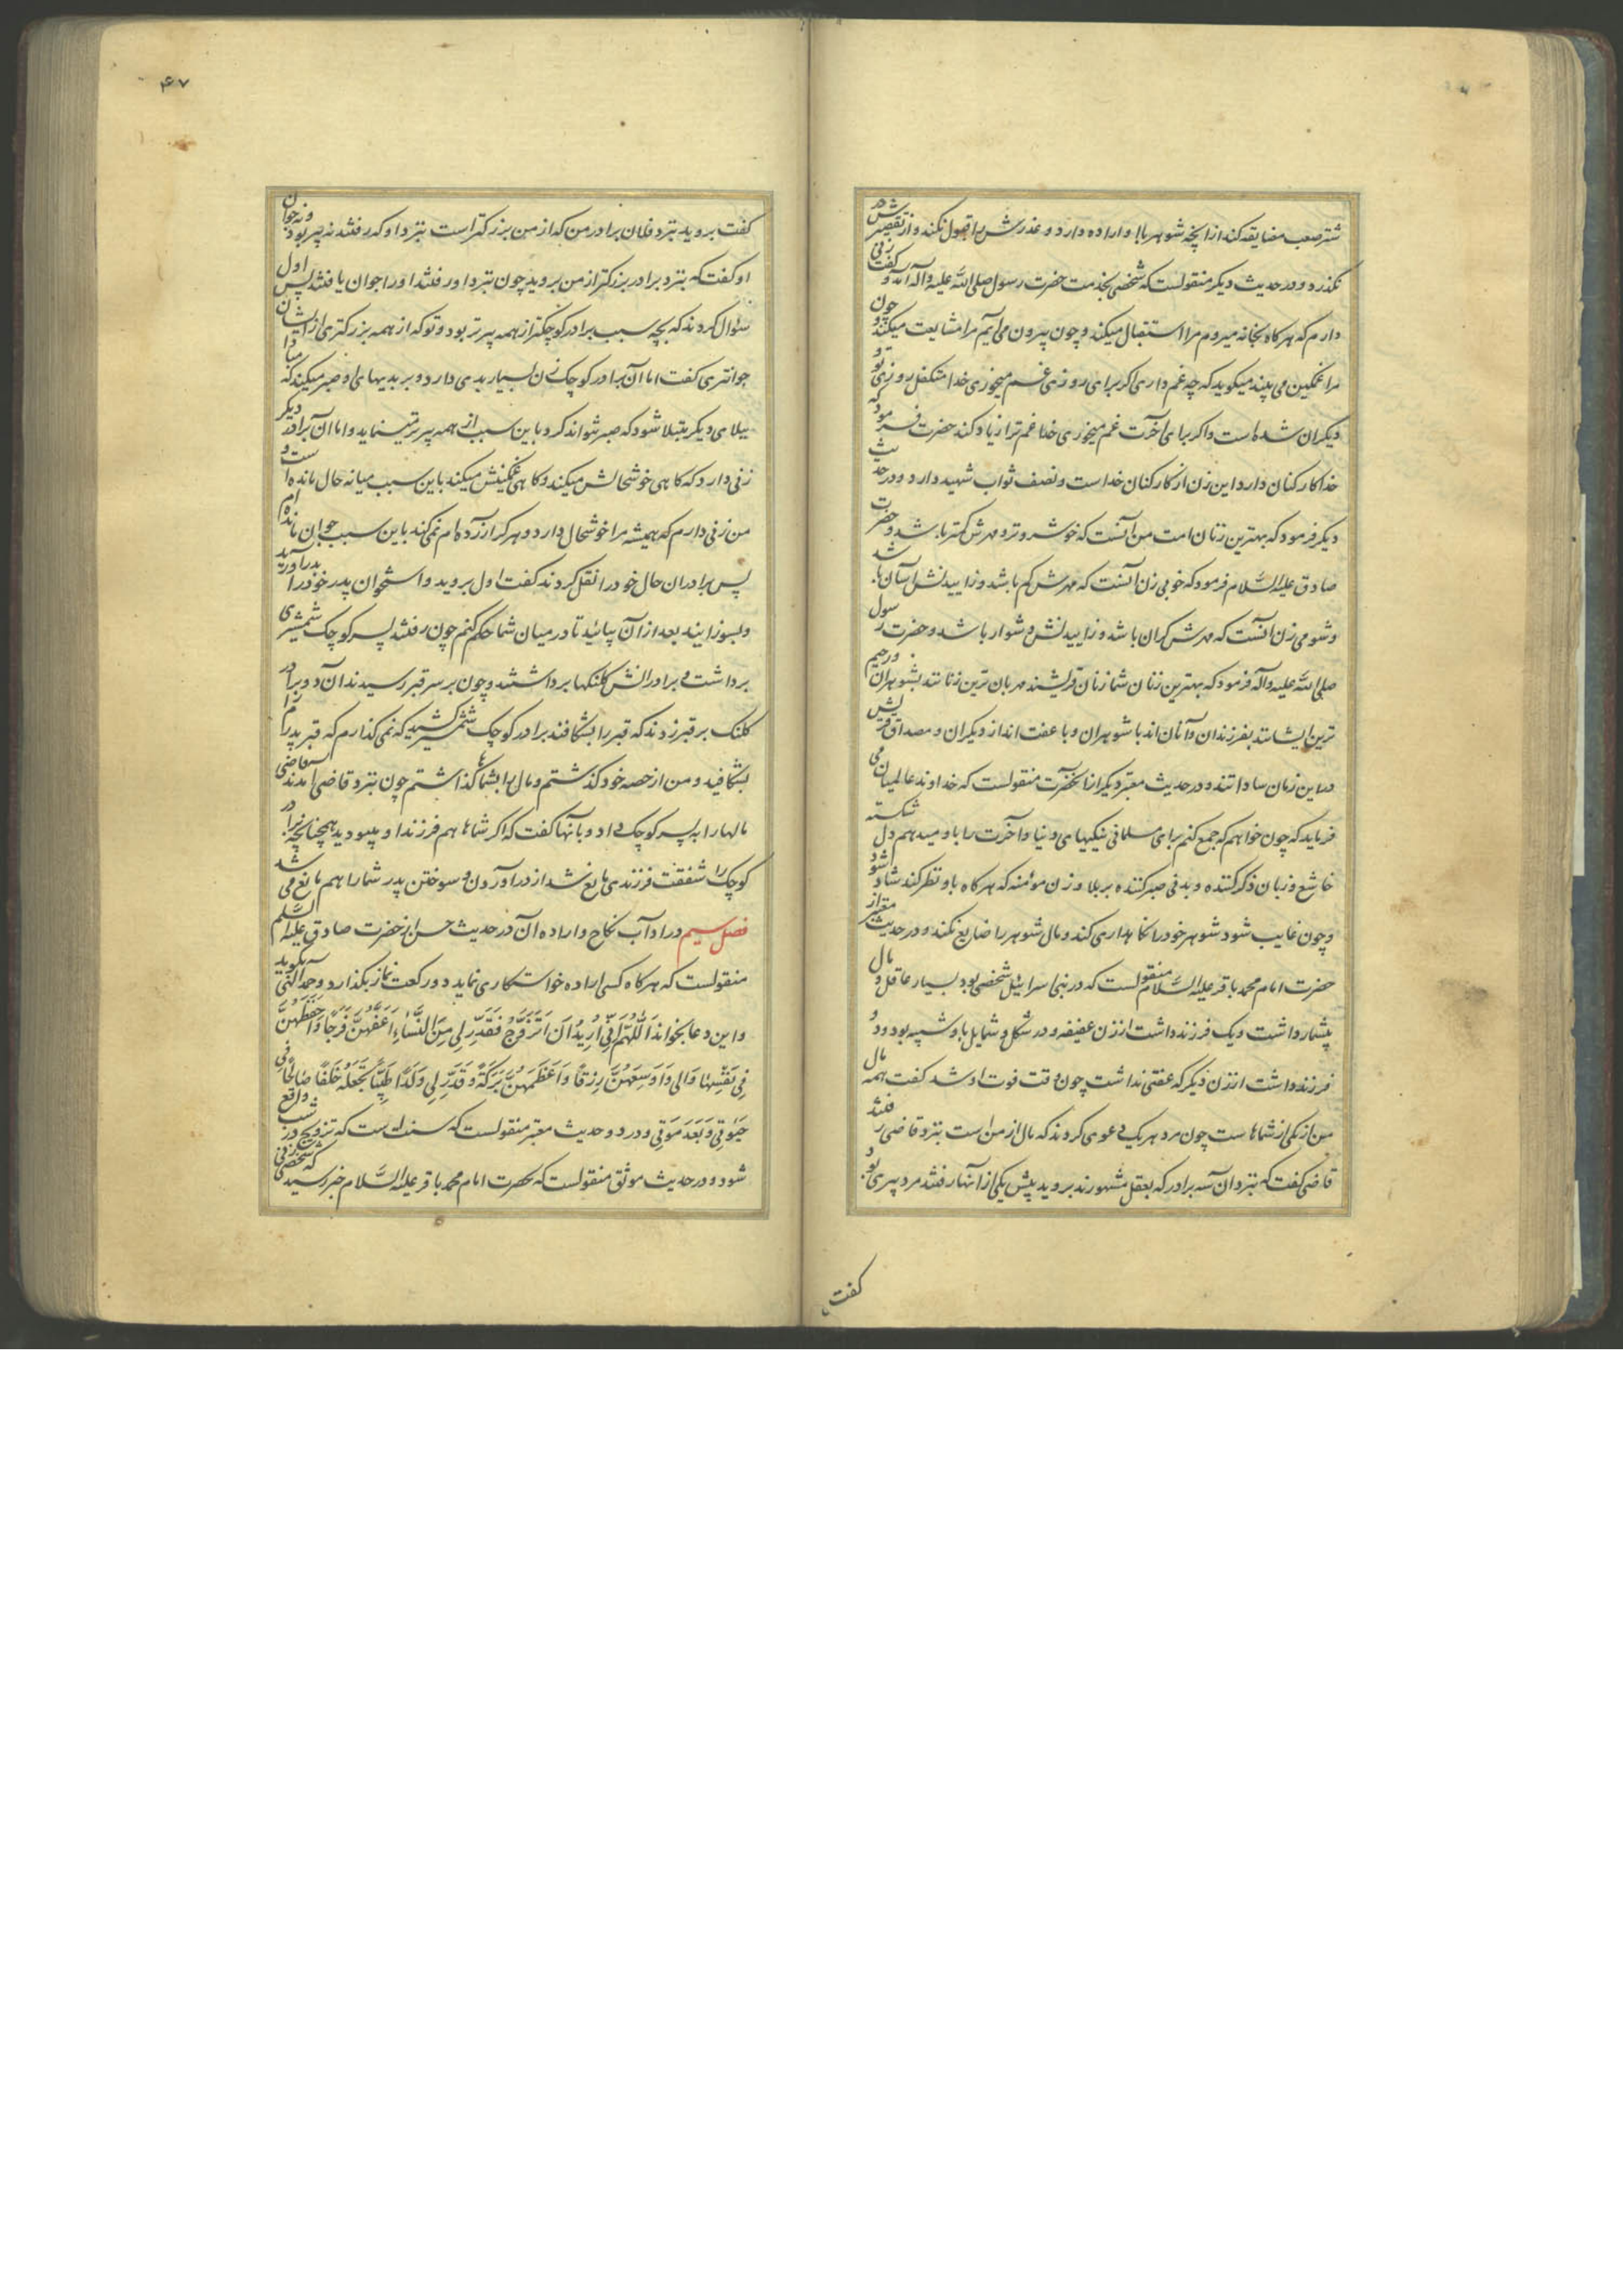 شتر صعب مضایقه کند از انچه شوهر با او اراده دارد و عذرش را قبول نکند و از تقصیرش در
نکذرد و در حدیث دیکر منقولست که شخصی بخدمت حضرت رسول صلی الله علیه و آله آمد و کفت زنی
دارم که هرکاه بخانه میروم مرا استقبال میکند و چون بیرون می‌ایم مرا مشایعت میکند و چون
مرا غمکین می‌بیند میکوید که چه غم داری اکر برای روزی غم میخوری خدا متکفل روزی تو و
دیکران شده است و اکر برای آخرت غم میخوری خدا غم ترا زیاد کند حضرت فرمود که
خدا کارکنان دارد این زن از کارکنان خداست و نصف ثواب شهید دارد و در حدیث
دیکر فرمود که بهترین زنان امت من آنست که خوشروتر و مهرش کمتر باشد و حضرت
صادق علیه السلام فرمود که خوبی زن آنست که مهرش کم باشد و زاییدنش آسان باشد
و شومی زن آنست که مهرش کران باشد و زاییدنش دشوار باشد و حضرت رسول
صلی الله علیه و آله فرمود که بهترین زنان شما زنان قریشند مهربان ترین زنانند بشوهران و رحیم
ترین ایشانند بفرزندان و آنان اند با شوهران و با عفت اند از دیکران و مصداق قریش
در این زمان ساداتند و در حدیث معتبر دیکر از آنحضرت منقولست که خداوند عالمیان می
فرماید که چون خواهم که جمع کنم برای مسلمانی نیکیهای دنیا و آخرت را باو میدهم دل شکسته
خاشع و زبان ذکر کننده و بدنی صبر کننده بر بلا و زن مومنه که هرکاه باو نظر کند شاد شود
و چون غایب شود شوهر خود را نکاهداری کند و مال شوهر را ضایع نکند و در حدیث معتبر از
حضرت امام محمد باقر علیه السلام منقولست که در بنی اسرائیل شخصی بود بسیار عاقل و مال
بیشمار داشت و یک فرزند داشت از زن عفیفه و در شکل و شمایل باو شبیه بود و دو
فرزند داشت از زن دیکر که عفتی نداشت چون وقت فوت او شد کفت همه مال
من از یکی از شماهاست چون مرد هر یک دعوی کردند که مال از من است بنزد قاضی رفتند
قاضی کفت که بنزد آن سه برادر که بعقل مشهورند بروید پیش یکی از آنها رفتند مرد پیری بود
کفت
۴۷
کفت بروید بنزد فلان برادر من که از من بزرکتر است بنزد او که رفتند نه پیر بود و نه جوان
او کفت که بنزد برادر بزرکتر از من بروید چون بنزد او رفتند او را جوان یافتند پس اول
سئوال کردند که بچه سبب برادر کوچکتر از همه پیرتر بود و تو که از همه بزرکتری از ایشان
جوانتری کفت اما آن برادر کوچک زن بسیار بدی دارد و بر بدیهای او صبر میکند که مبادا
ببلای دیکر مبتلا شود که صبر نتواند کرد و باین سبب از همه پیرتر مینماید و اما آن برادر دیکر
زنی دارد که کاهی خوشحالش میکند و کاهی غمکینش میکند باین سبب میانه حال مانده است و
من زنی دارم که همیشه مرا خوشحال دارد و هرکز آزرده‌ام نمیکند باین سبب جوان مانده‌ام
پس برادران حال خود را نقل کردند کفت اول بروید و استخوان پدر خود را بدر آورید
و بسوزانید بعد از آن بیائید تا در میان شما حکم کنم چون رفتند پسر کوچک شمشیری
برداشت و برادرانش کلنکها برداشتند و چون بر سر قبر رسیدند آن دو برادر
کلنک بر قبر زدند که قبر را بشکافند برادر کوچک شمشیر کشید که نمیکذارم که قبر پدرم را
بشکافید و من از حصه خود کذشتم و مال را بشما کذاشتم چون بنزد قاضی امدند قاضی
مالها را به پسر کوچک داد و بآنها کفت که اکر شماها هم فرزند او میبودید همچنانچه برادر
کوچک را شفقت فرزندی مانع شد از درآوردن و سوختن پدر شما را هم مانع می شد
فصل سیم در اداب نکاح و اراده آن در حدیث حسن از حضرت صادق علیه السلم
منقولست که هرکاه کسی اراده خواستکاری نماید دو رکعت نماز بکذارد و حمد الهی بکوید
و این دعا بخواند اَللّهُمَّ اِنّی اُریدُ اَن اَتَزَوَّجُ فَقَدِّر لی مِنَ النِّساءِ اَعَفَّهُنَّ فَرجًا وَاَحفَظَهُنَّ
فی نَفسِها وَمالی وَاَوسَعَهُنَّ رِزقًا وَاَعظَمَهُنَّ بَرَکَةً وَقَدِّر لی وَلَدًا طَیِّبًا تَجعَلُهُ خَلَفًا صالِحًا فی
حَیوتی وَبَعدَ مَوتی و در دو حدیث معتبر منقولست که سنت است که تزویج در شب واقع
شود و در حدیث موثق منقولست که بحضرت امام محمد باقر علیه السلام خبر رسید که شخصی زنی